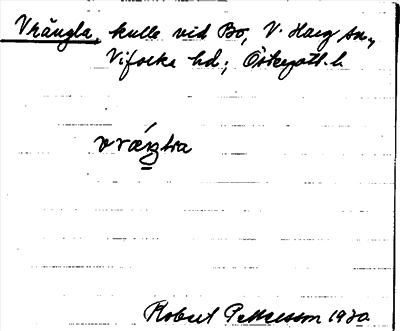 Vrängla, kulle vid Bo, V. Harg sn.,
Vifolka hd.; Östergötl. l.
Robert Pettersson 1930